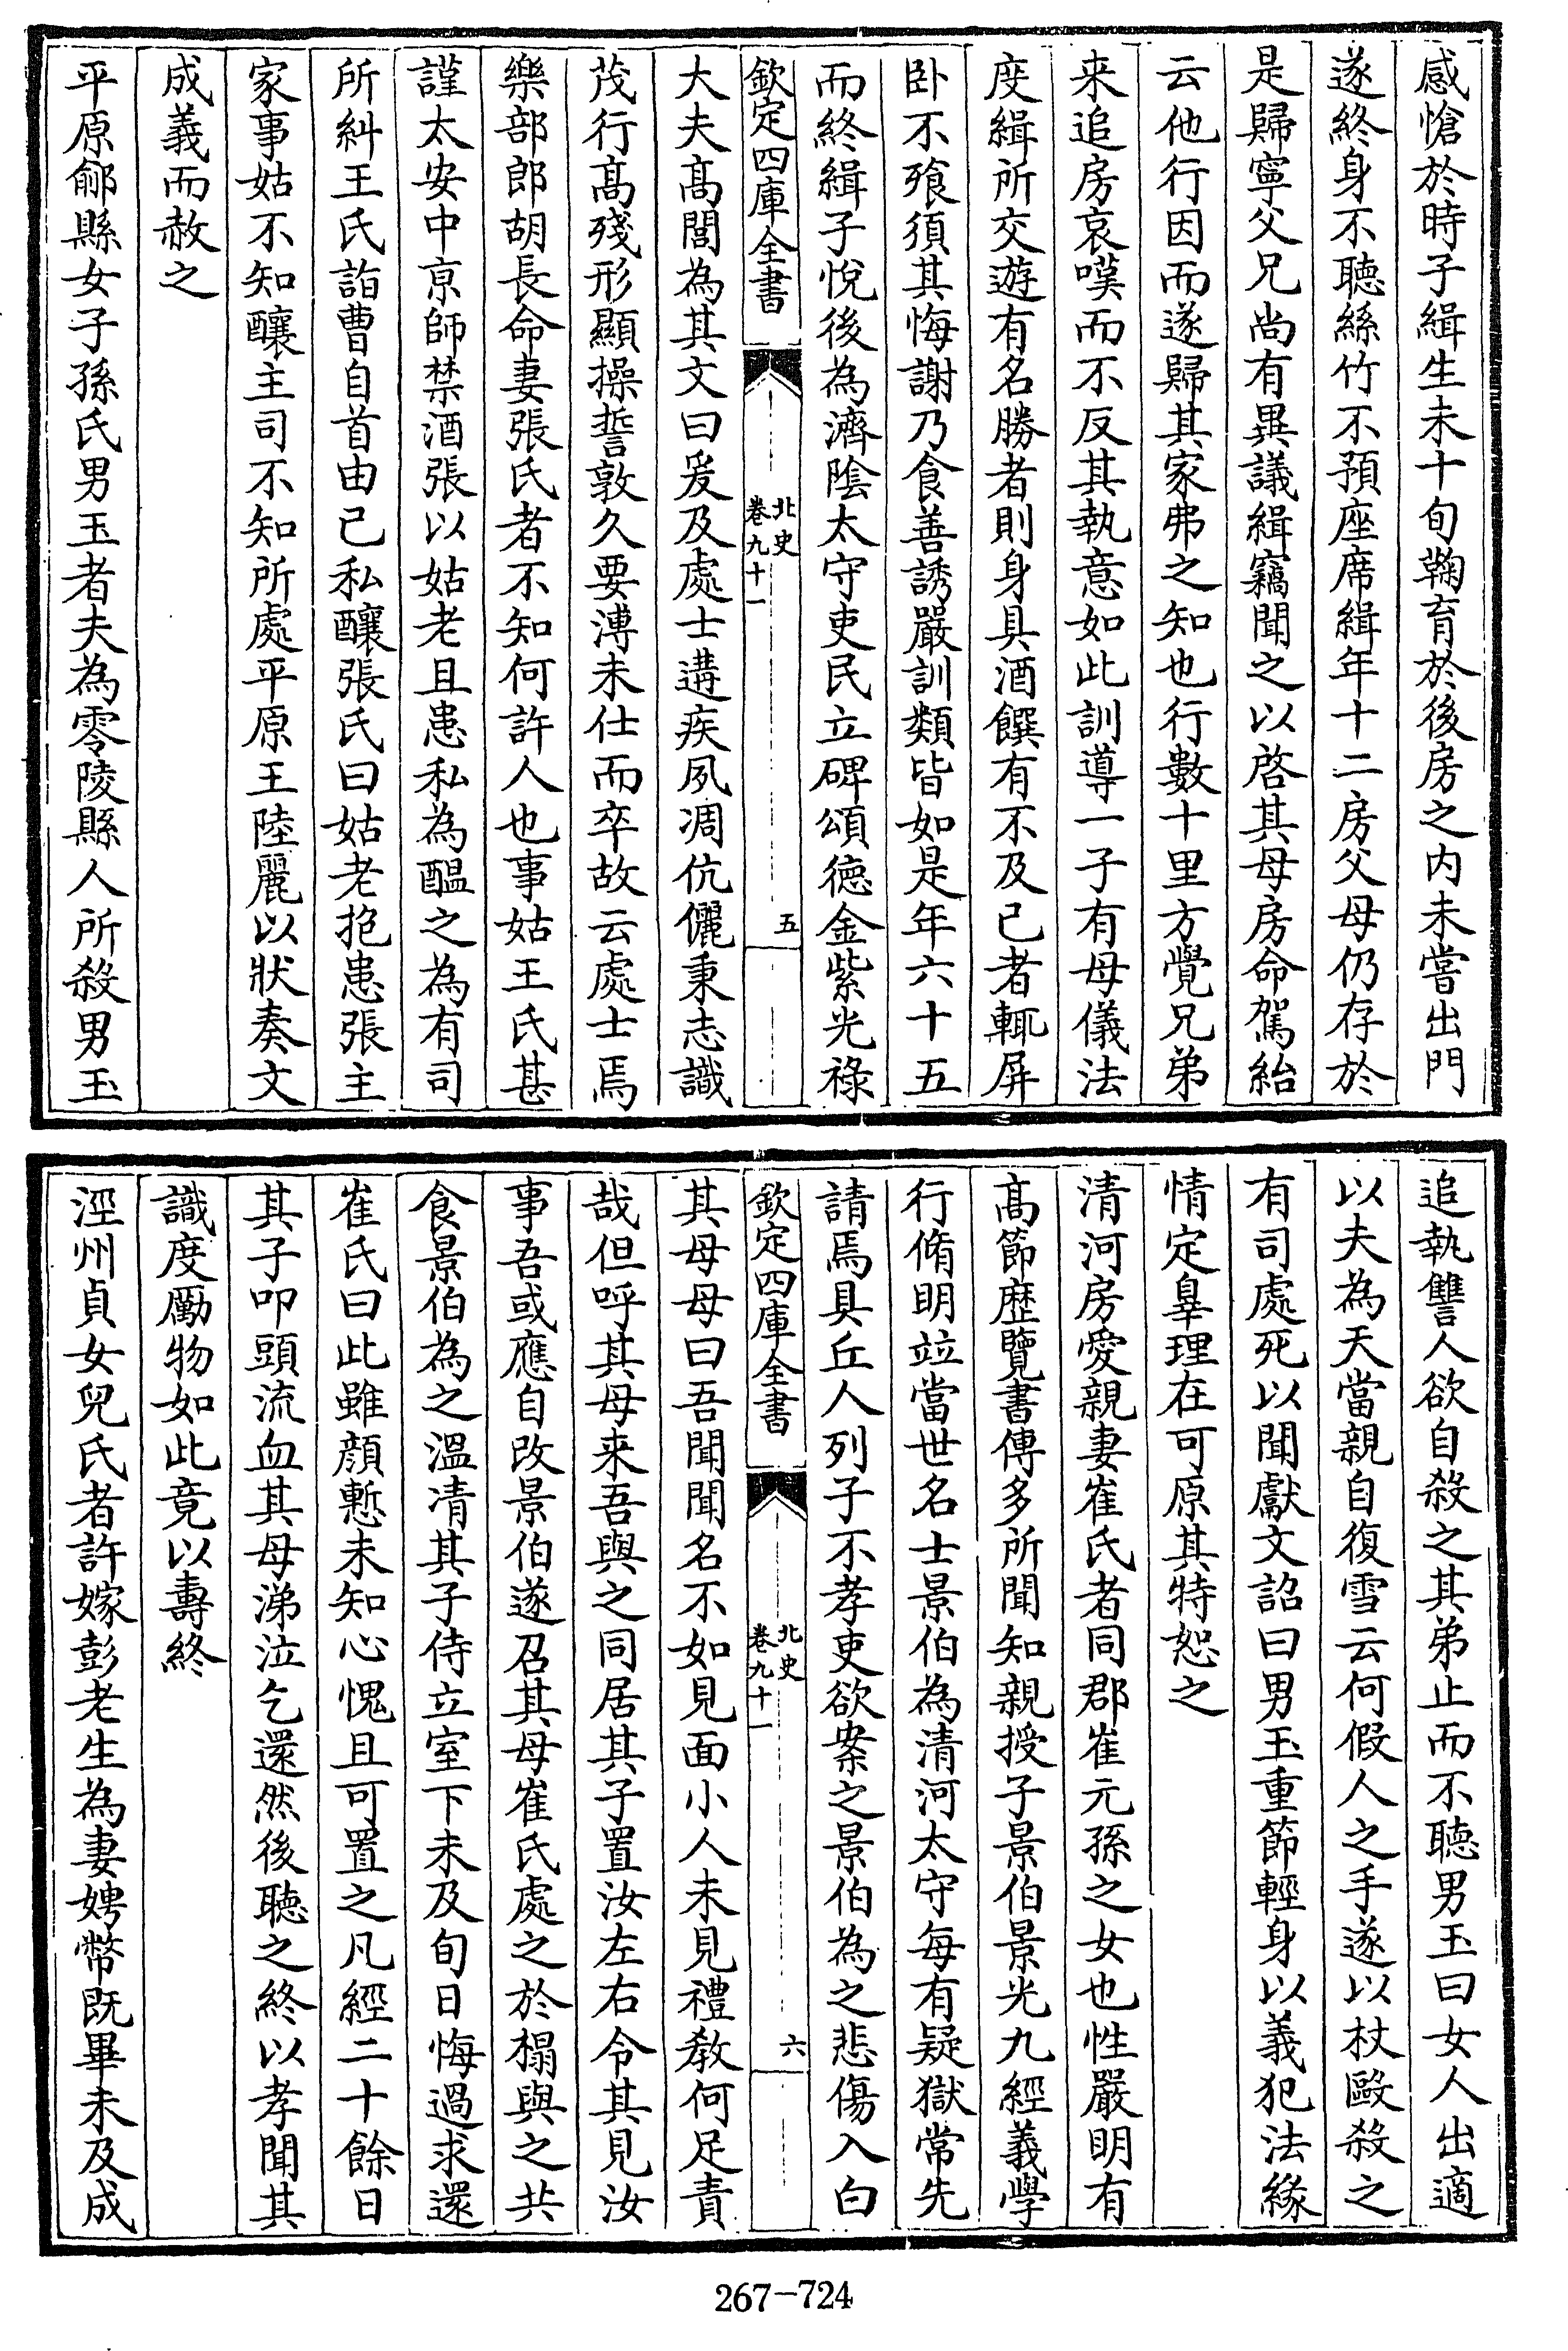 感愴於時子緝生未十旬鞠育於後房之内未嘗出門
遂終身不聽絲竹不預座席緝年十二房父母仍存於
是歸寧父兄尚有異議緝竊聞之以啓其母房命駕紿
云他行因而遂歸其家弗之知也行數十里方覺兄弟
来追房哀嘆而不反其執意如此訓導一子有母儀法
度緝所交遊有名勝者則身具酒饌有不及己者輒屏
卧不飱須其悔謝乃食善誘嚴訓類皆如是年六十五
而終緝子悅後為濟隂太守吏民立碑頌徳金紫光祿
欽定四庫全書
北史
卷九十一
五
大夫髙閭為其文曰爰及處士遘疾夙凋伉儷秉志識
茂行髙殘形顯操誓敦久要溥未仕而卒故云處士焉
樂部郎胡長命妻張氏者不知何許人也事姑王氏甚
謹太安中京師禁酒張以姑老且患私為醖之為有司
所糾王氏詣曹自首由己私釀張氏曰姑老抱患張主
家事姑不知釀主司不知所處平原王陸麗以狀奏文
成義而赦之
平原鄃縣女子孫氏男玉者夫為零陵縣人所殺男玉
追執讐人欲自殺之其弟止而不聴男玉曰女人出適
以夫為天當親自復雪云何假人之手遂以杖毆殺之
有司處死以聞獻文詔曰男玉重節輕身以義犯法緣
情定辠理在可原其特恕之
清河房愛親妻崔氏者同郡崔元孫之女也性嚴明有
髙節歴覽書傳多所聞知親授子景伯景光九經義學
行脩明竝當世名士景伯為清河太守每有疑獄常先
請焉具丘人列子不孝吏欲案之景伯為之悲傷入白
欽定四庫全書
北史
卷九十一
六
其母母曰吾聞聞名不如見面小人未見禮教何足責
哉但呼其母来吾與之同居其子置汝左右令其見汝
事吾或應自改景伯遂召其母崔氏處之於榻與之共
食景伯為之溫凊其子侍立室下未及旬日悔過求還
崔氏曰此雖顔慙未知心愧且可置之凡經二十餘日
其子叩頭流血其母涕泣乞還然後聴之終以孝聞其
識度厲物如此竟以壽終
涇州貞女兒氏者許嫁彭老生為妻娉幣既畢未及成
267-724